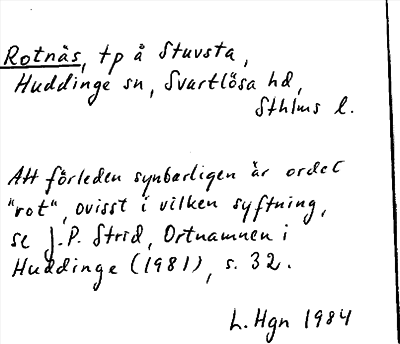 Rotnäs, tp å Stuvsta,
Huddinge sn, Svartlösa hd,
Sthlms l.
Att förleden synbarligen är ordet
"rot", ovisst i vilken syftning,
se J.P. Strid, Ortnamnen i
Huddinge (1981), s. 32.
L. Hgn 1984